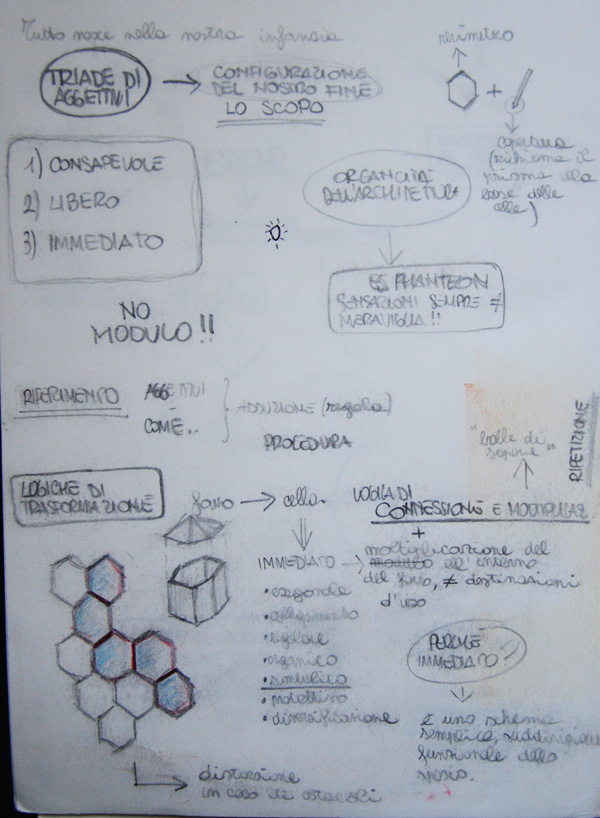 Tutto nasce nella nostra infanzia
perimetro
TRIADE DI
AGGETTIVI
CONFIGURAZIONE
DEL NOSTRO FINE
LO SCOPO
+
copertura
(richiama il
prisma alla
base delle
celle)
1) CONSAPEVOLE
2) LIBERO
3) IMMEDIATO
ORGANICITÀ
DELL'ARCHITETTURA
ES PHANTEON
SENSAZIONI SEMPRE ≠
MERAVIGLIA !!
NO
MODULO !!
RIFERIMENTO
AGGETTIVI
COME..
ADDUZIONE (regola)
PROCEDURA
RIPETIZIONE
"bolle di
sapone"
LOGICHE DI
TRASFORMAZIONE
favo → cella
LOGICA DI
CONNESSIONE E MOLTIPLICAZ
+
moltiplicazione del
modulo all'interno
del favo, ≠ destinazioni
d'uso
IMMEDIATO
• esagonale
• collegamento
• regolare
• organico
• simbolico
• modellino
• diversificazione
PERCHÉ
IMMEDIATO?
è uno schema
semplice, suddivisione
funzionale dello
spazio.
distorsione
in caso di ostacoli